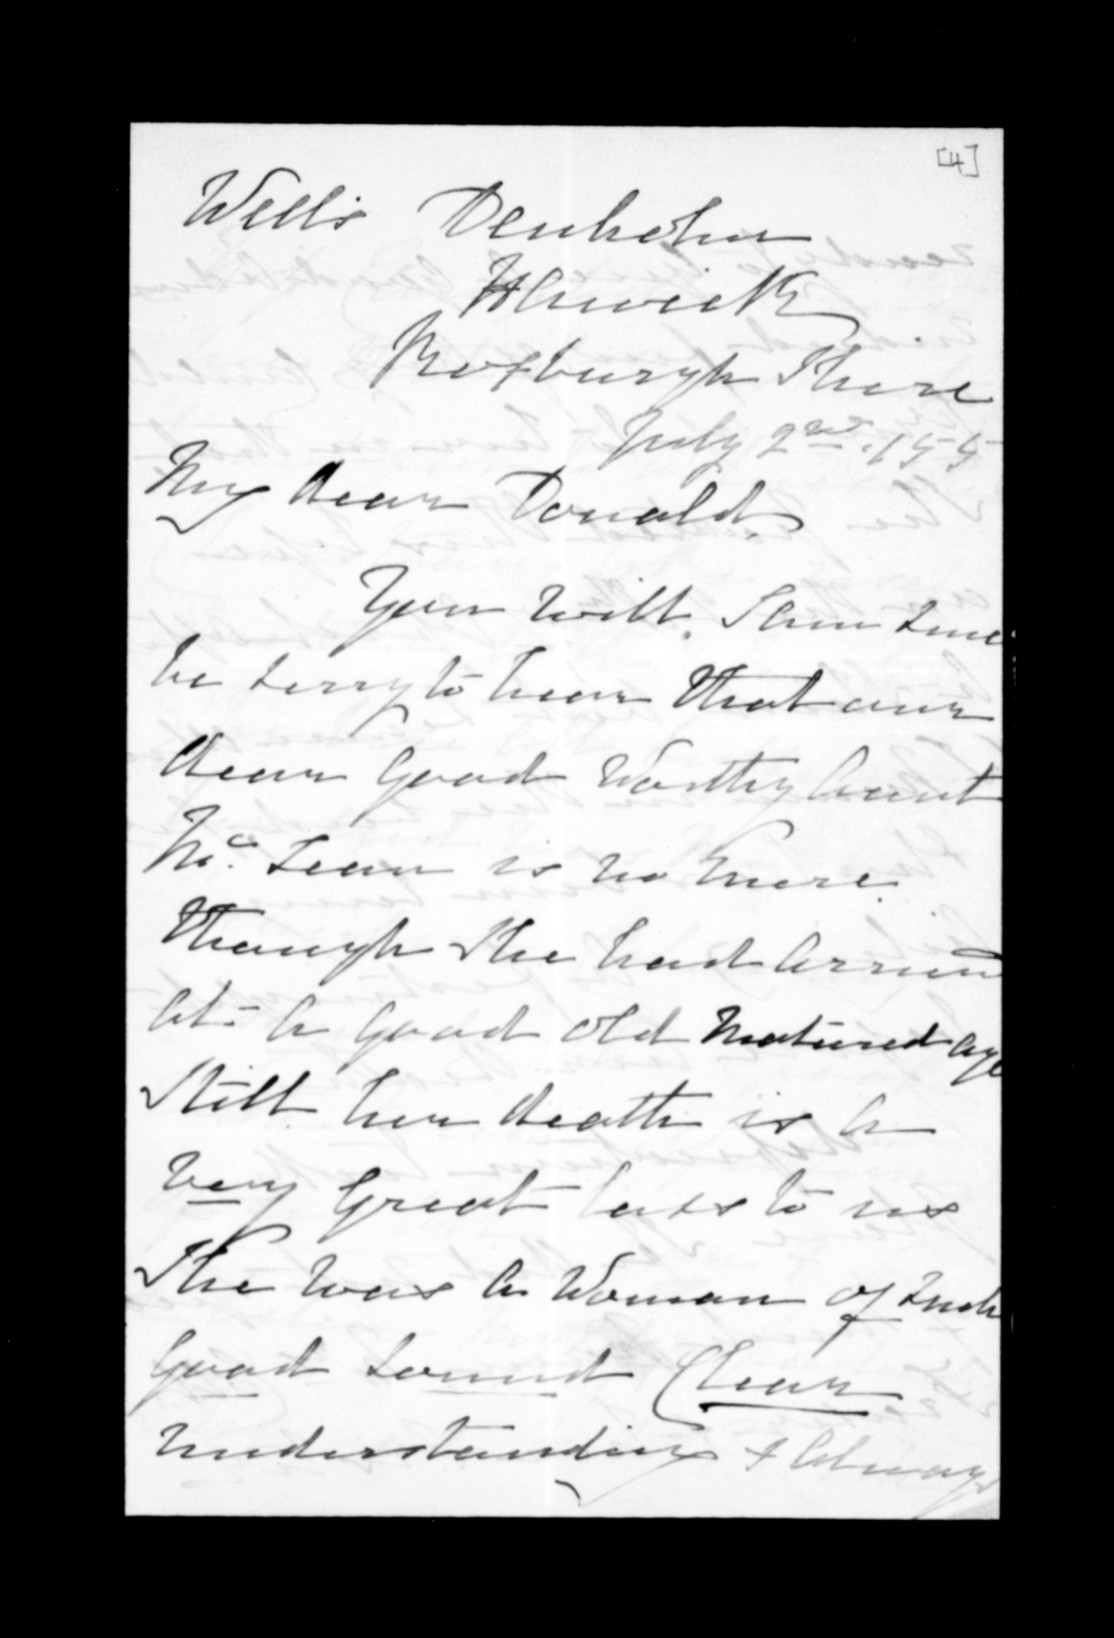 [4]
Wells Denholm
Hawick
Roxburgh Shire
July 2nd. 155
My dear Donald
You will, I am sure
be sorry to hear that our
dear good Worthy Aunt
Mc. Lean is no more.
Though She had arrived
at a good old matured age
Still her death is a
very great loss to us
She was a Woman of such
good sound Clear
understanding & always